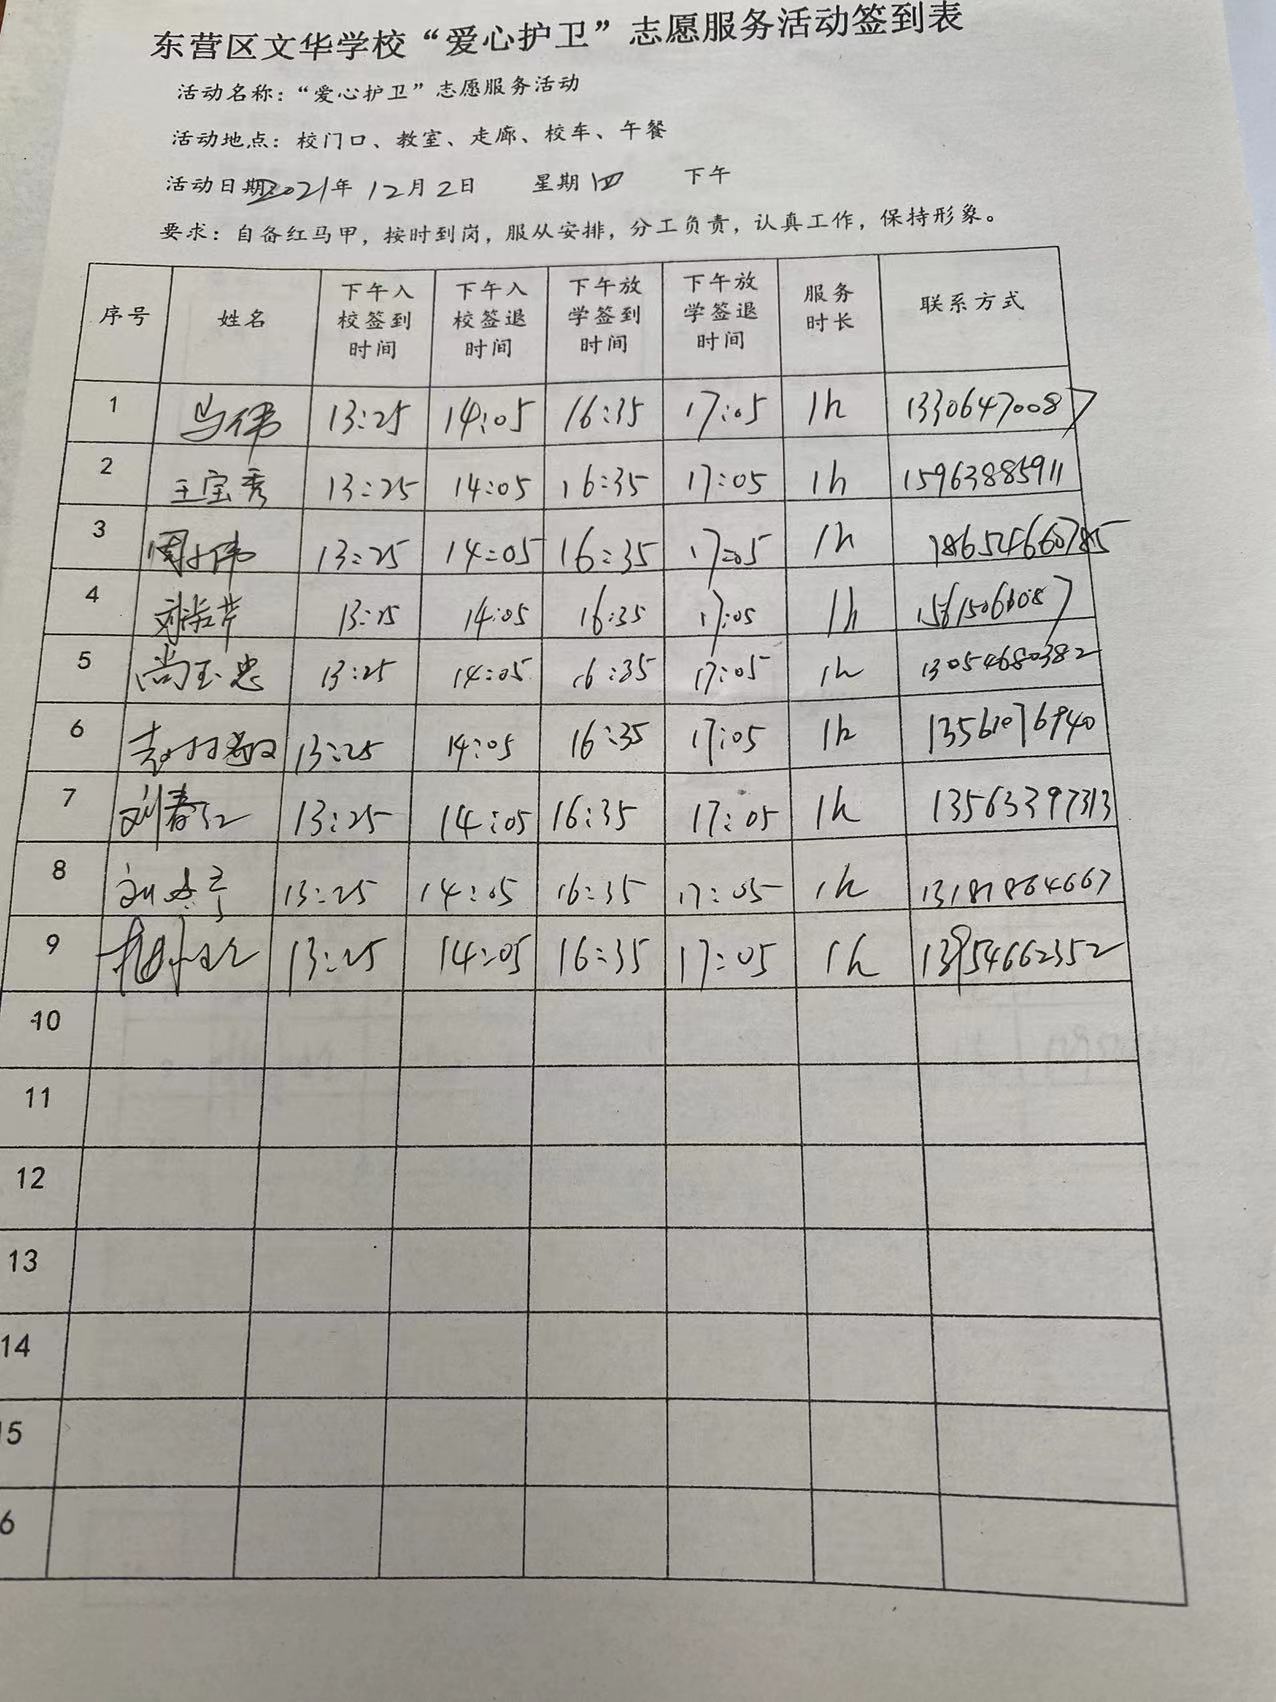 东营区文华学校“爱心护卫”志愿服务活动签到表
活动名称：“爱心护卫”志愿服务活动
活动地点：校门口、教室、走廊、校车、午餐
活动日期2021年12月2日 星期四 下午
要求：自备红马甲，按时到岗，服从安排，分工负责，认真工作，保持形象。
序号 姓名 下午入校签到时间 下午入校签退时间 下午放学签到时间 下午放学签退时间 服务时长 联系方式
1 马伟 13:25 14:05 16:35 17:05 1h 13306470087
2 王宝秀 13:25 14:05 16:35 17:05 1h 15963885911
3 13:25 14:05 16:35 17:05 1h
4 13:25 14:05 16:35 17:05 1h
5 尚玉忠 13:25 14:05 16:35 17:05 1h 13054680382
6 13:25 14:05 16:35 17:05 1h 13561076940
7 刘春江 13:25 14:05 16:35 17:05 1h 13563397313
8 13:25 14:05 16:35 17:05 1h 13181864667
9 13:25 14:05 16:35 17:05 1h 13954662352
10
11
12
13
14
15
6